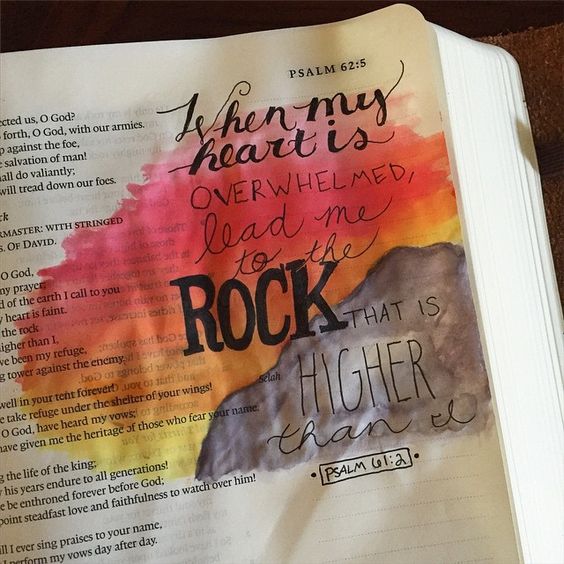 PSALM 62:5
ected us, O God?
forth, O God, with our armies.
p against the foe,
salvation of man!
hall do valiantly;
will tread down our foes.
RMASTER: WITH STRINGED
S. OF DAVID.
O God,
my prayer;
d of the earth I call to you
y heart is faint.
the rock
igher than I,
ve been my refuge,
ng tower against the enemy.
Selah
well in your tent forever!
e take refuge under the shelter of your wings!
O God, have heard my vows;
have given me the heritage of those who fear your name.
g the life of the king;
y his years endure to all generations!
e be enthroned forever before God;
point steadfast love and faithfulness to watch over him!
ll I ever sing praises to your name,
I perform my vows day after day.
When my
heart is
OVERWHELMED,
lead me
to the
ROCK THAT IS
HIGHER
than I
PSALM 61:2